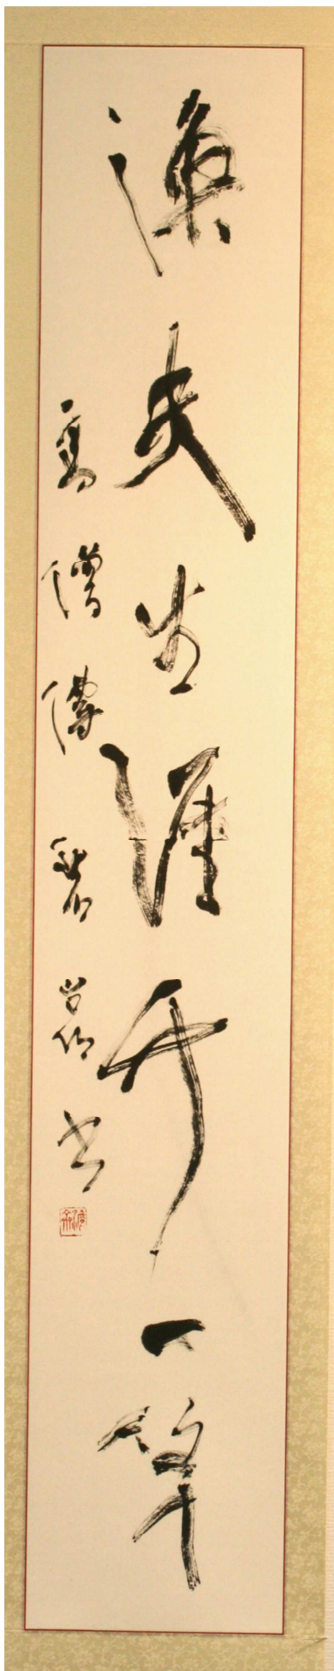 漁夫生涯竹一竿
高僧傳
書